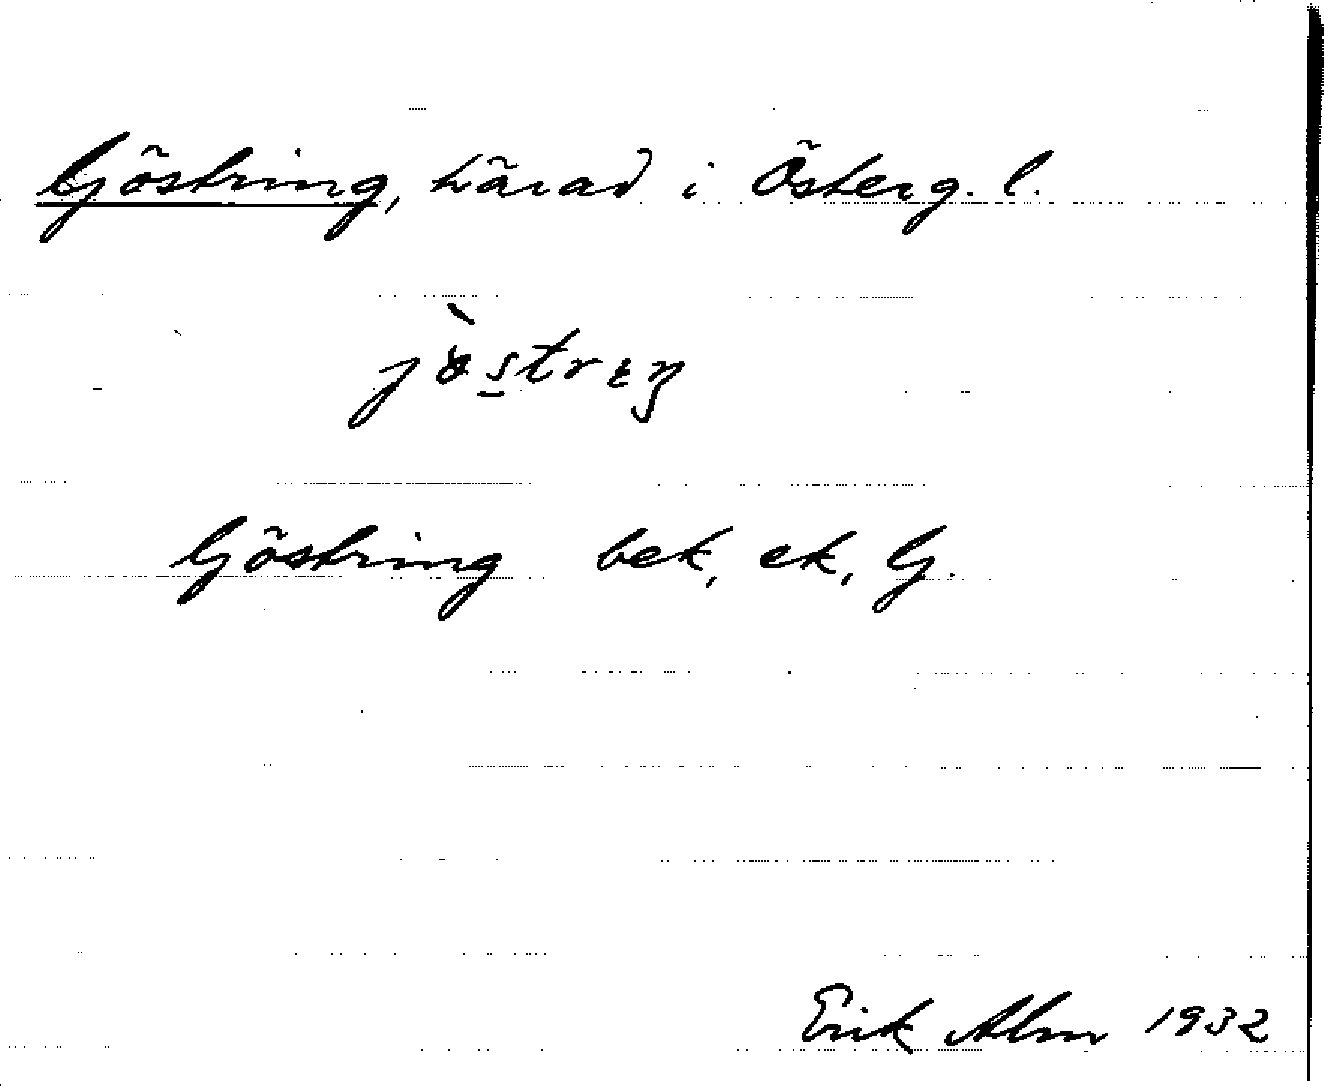 Göstring, härad i Österg. l.
jö̀strɩŋ
Göstring bek, ek, G.
Erik Alm 1932